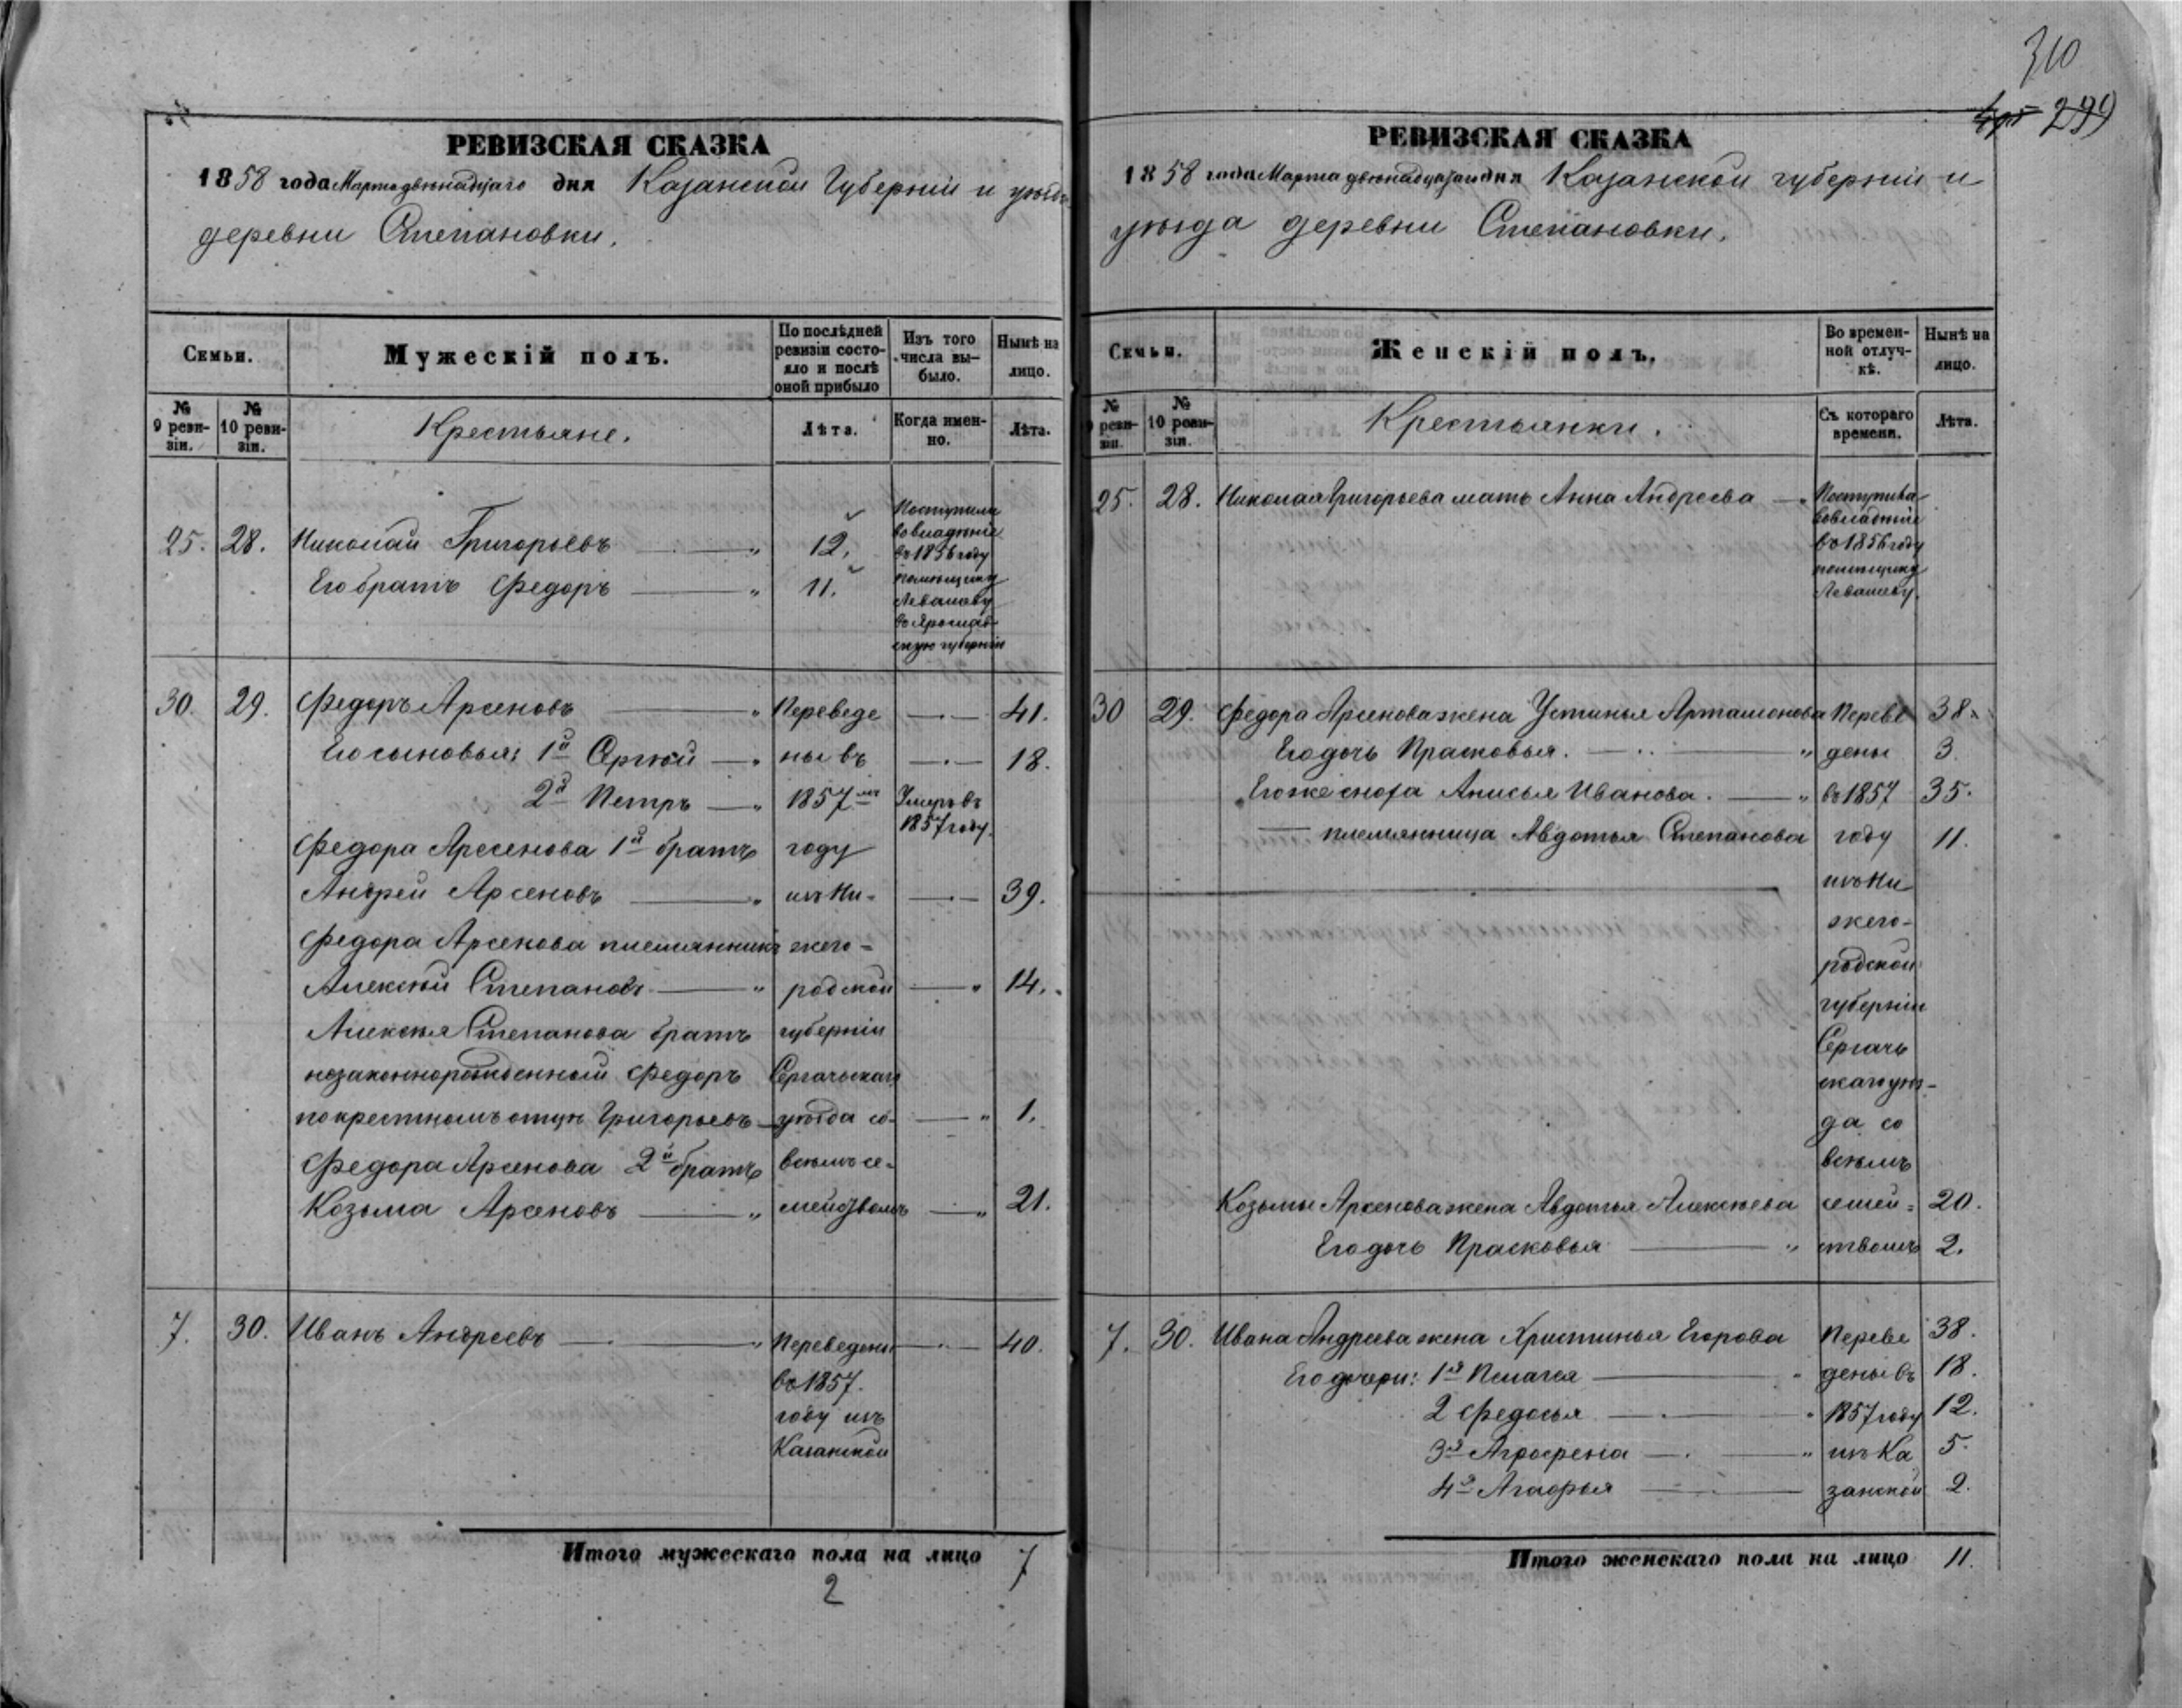 310
299
РЕВИЗСКАЯ СКАЗКА
1858 года Марта двенадцатаго дня Казанской Губернiи и уѣзда
деревни Степановки.
Семьи.
Мужескій полъ.
По послѣдней ревизіи состояло и послѣ оной прибыло
Изъ того числа выбыло.
Нынѣ на лицо.
№ 9 ревизіи.
№ 10 ревизіи.
Крестьяне.
Лѣта.
Когда именно.
Лѣта.
25. 28. Николай Григорьевъ 12.
Его братъ Федоръ 11.
Поступили
во владѣніе
въ 1856 году
помѣщику
Левашеву
въ Ярослав
скую губернію
30. 29. Федоръ Арсеновъ Переведе 41.
Его сыновья: 1й Сергѣй ны въ 18.
2й Петръ 1857мъ Умеръ въ
1857 году.
Федора Арсенова 1й братъ году
Андрей Арсеновъ изъ Ни- 39.
Федора Арсенова племянникъ жего-
Алексѣй Степановъ родской 14.
Алексѣя Степанова братъ губерніи
незаконнорожденный Федоръ Сергачьскаго
по крестномъ отцѣ Григорьевъ уѣзда со- 1.
Федора Арсенова 2й братъ всѣмъ се-
Козьма Арсеновъ мействомъ 21.
7. 30. Иванъ Андреевъ Переведены 40.
въ 1857.
году изъ
Казанской
Итого мужескаго пола на лицо 7
2
РЕВИЗСКАЯ СКАЗКА
1858 года Марта двенадцатаго дня Казанской губерніи и
уѣзда деревни Степановки.
Семьи.
Женскій полъ.
Во временной отлучкѣ.
Нынѣ на лицо.
№ 9 ревизіи.
№ 10 ревизіи.
Крестьянки.
Съ котораго времени.
Лѣта.
25. 28. Николая Григорьева мать Анна Андреева Поступила
во владѣніе
въ 1856 году
помѣщику
Левашеву.
30 29. Федора Арсенова жена Устинья Артамонова Переве 38.
Его дочь Прасковья. дены 3.
Его же сноха Анисья Иванова. въ 1857 35.
племянница Авдотья Степанова году 11.
изъ Ни
жего-
родской
губерніи
Сергачь
скаго уѣз-
да со
всѣмъ
Козьмы Арсенова жена Авдотья Алексѣева семей- 20.
Его дочь Прасковья ствомъ 2.
7. 30. Ивана Андреева жена Христинья Егорова Переве 38.
Его дочери: 1я Пелагея дены въ 18.
2 Федосья 1857 году 12.
3я Агрофена изъ Ка 5.
4я Агафья занской 2.
Итого женскаго пола на лицо 11.